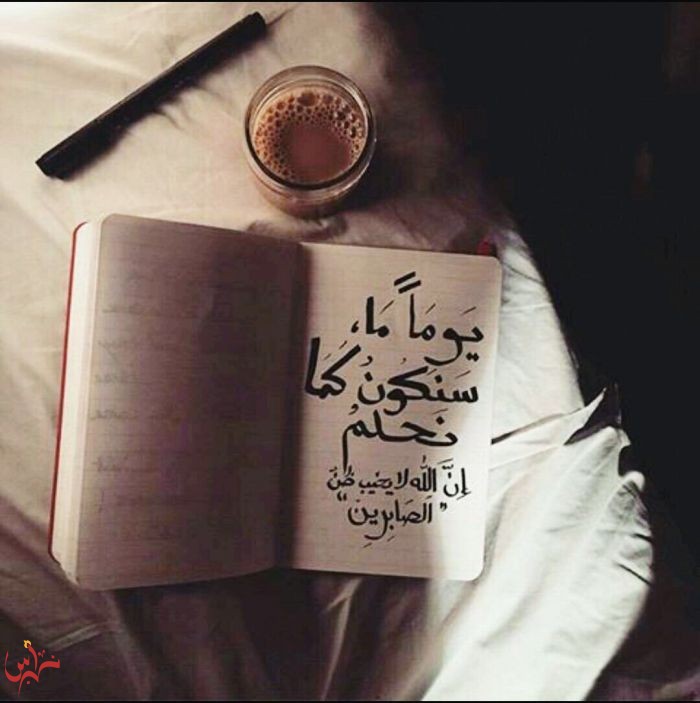 يَوماً مَا،
سَنَكُونُ كَمَا
نَحلمُ
إنَّ اللَّه لا يخيب ظنَّ
"الصَابِرِينِ"